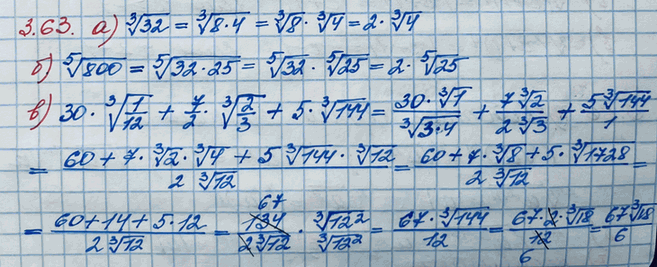 3.63. а) ∛32 = ∛(8·4) = ∛8 · ∛4 = 2·∛4
б) ⁵√800 = ⁵√(32·25) = ⁵√32 · ⁵√25 = 2·⁵√25
в) 30·∛(1/12) + 7/2·∛(2/3) + 5·∛144 = (30·∛1)/(∛(3·4)) + (7∛2)/(2∛3) + (5∛144)/1
= (60+7·∛2·∛4 + 5∛144·∛12)/(2∛12) = (60+7·∛8+5·∛1728)/(2∛12) =
= (60+14+5·12)/(2∛12) = 67 134/(2∛12) · ∛12²/∛12² = (67·∛144)/12 = (67·2·∛18)/12 6 = (67∛18)/6